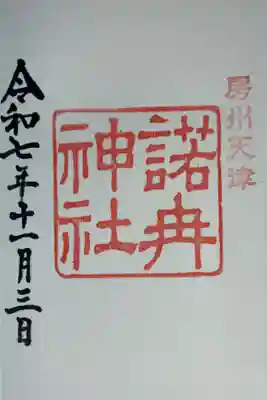 房州天津
諾冉
神社
令和七年十一月三日